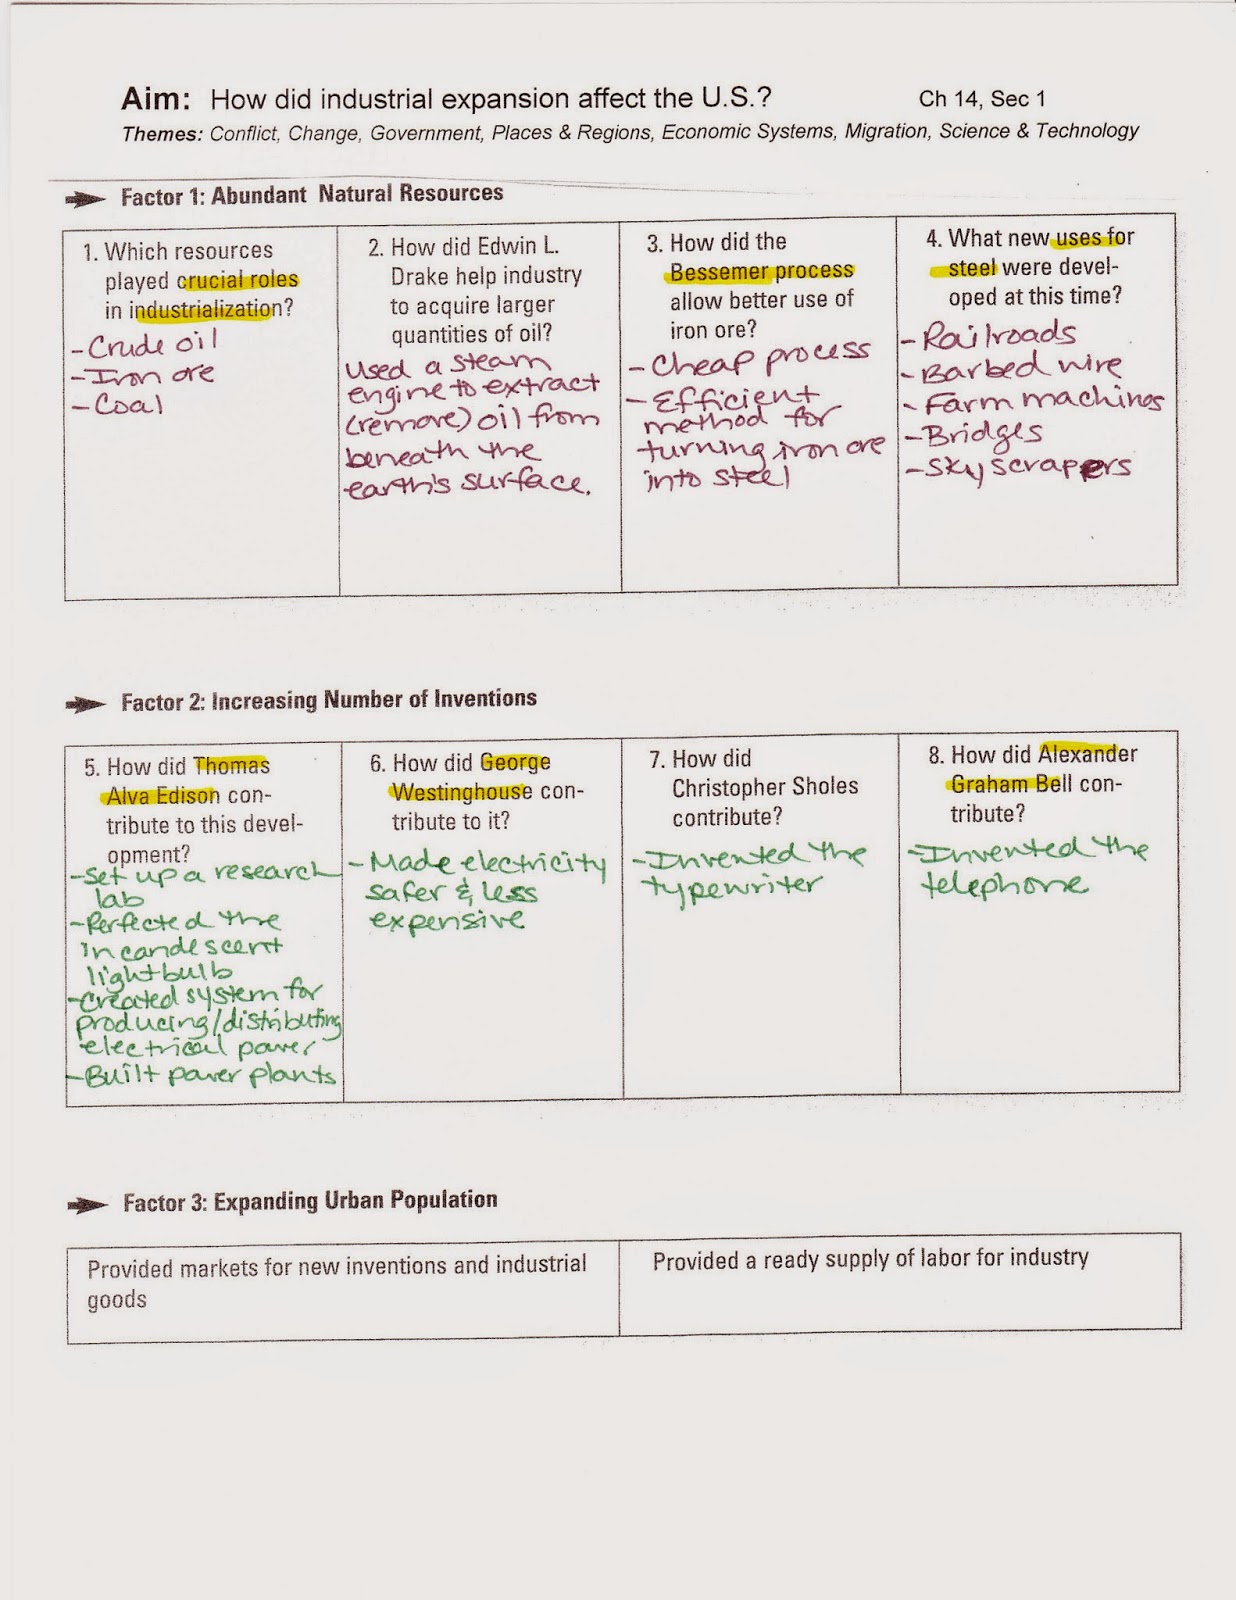 Aim: How did industrial expansion affect the U.S.? Ch 14, Sec 1
Themes: Conflict, Change, Government, Places & Regions, Economic Systems, Migration, Science & Technology
Factor 1: Abundant Natural Resources
1. Which resources
played crucial roles
in industrialization?
- Crude oil
- Iron ore
- Coal
2. How did Edwin L.
Drake help industry
to acquire larger
quantities of oil?
Used a steam
engine to extract
(remove) oil from
beneath the
earth's surface.
3. How did the
Bessemer process
allow better use of
iron ore?
- Cheap process
- Efficient
method for
turning iron ore
into steel
4. What new uses for
steel were devel-
oped at this time?
- Railroads
- Barbed wire
- Farm machines
- Bridges
- Skyscrapers
Factor 2: Increasing Number of Inventions
5. How did Thomas
Alva Edison con-
tribute to this devel-
opment?
- Set up a research
lab
- Perfected the
incandescent
lightbulb
- Created system for
producing/distributing
electrical power
- Built power plants
6. How did George
Westinghouse con-
tribute to it?
- Made electricity
safer & less
expensive
7. How did
Christopher Sholes
contribute?
- Invented the
typewriter
8. How did Alexander
Graham Bell con-
tribute?
- Invented the
telephone
Factor 3: Expanding Urban Population
Provided markets for new inventions and industrial
goods
Provided a ready supply of labor for industry